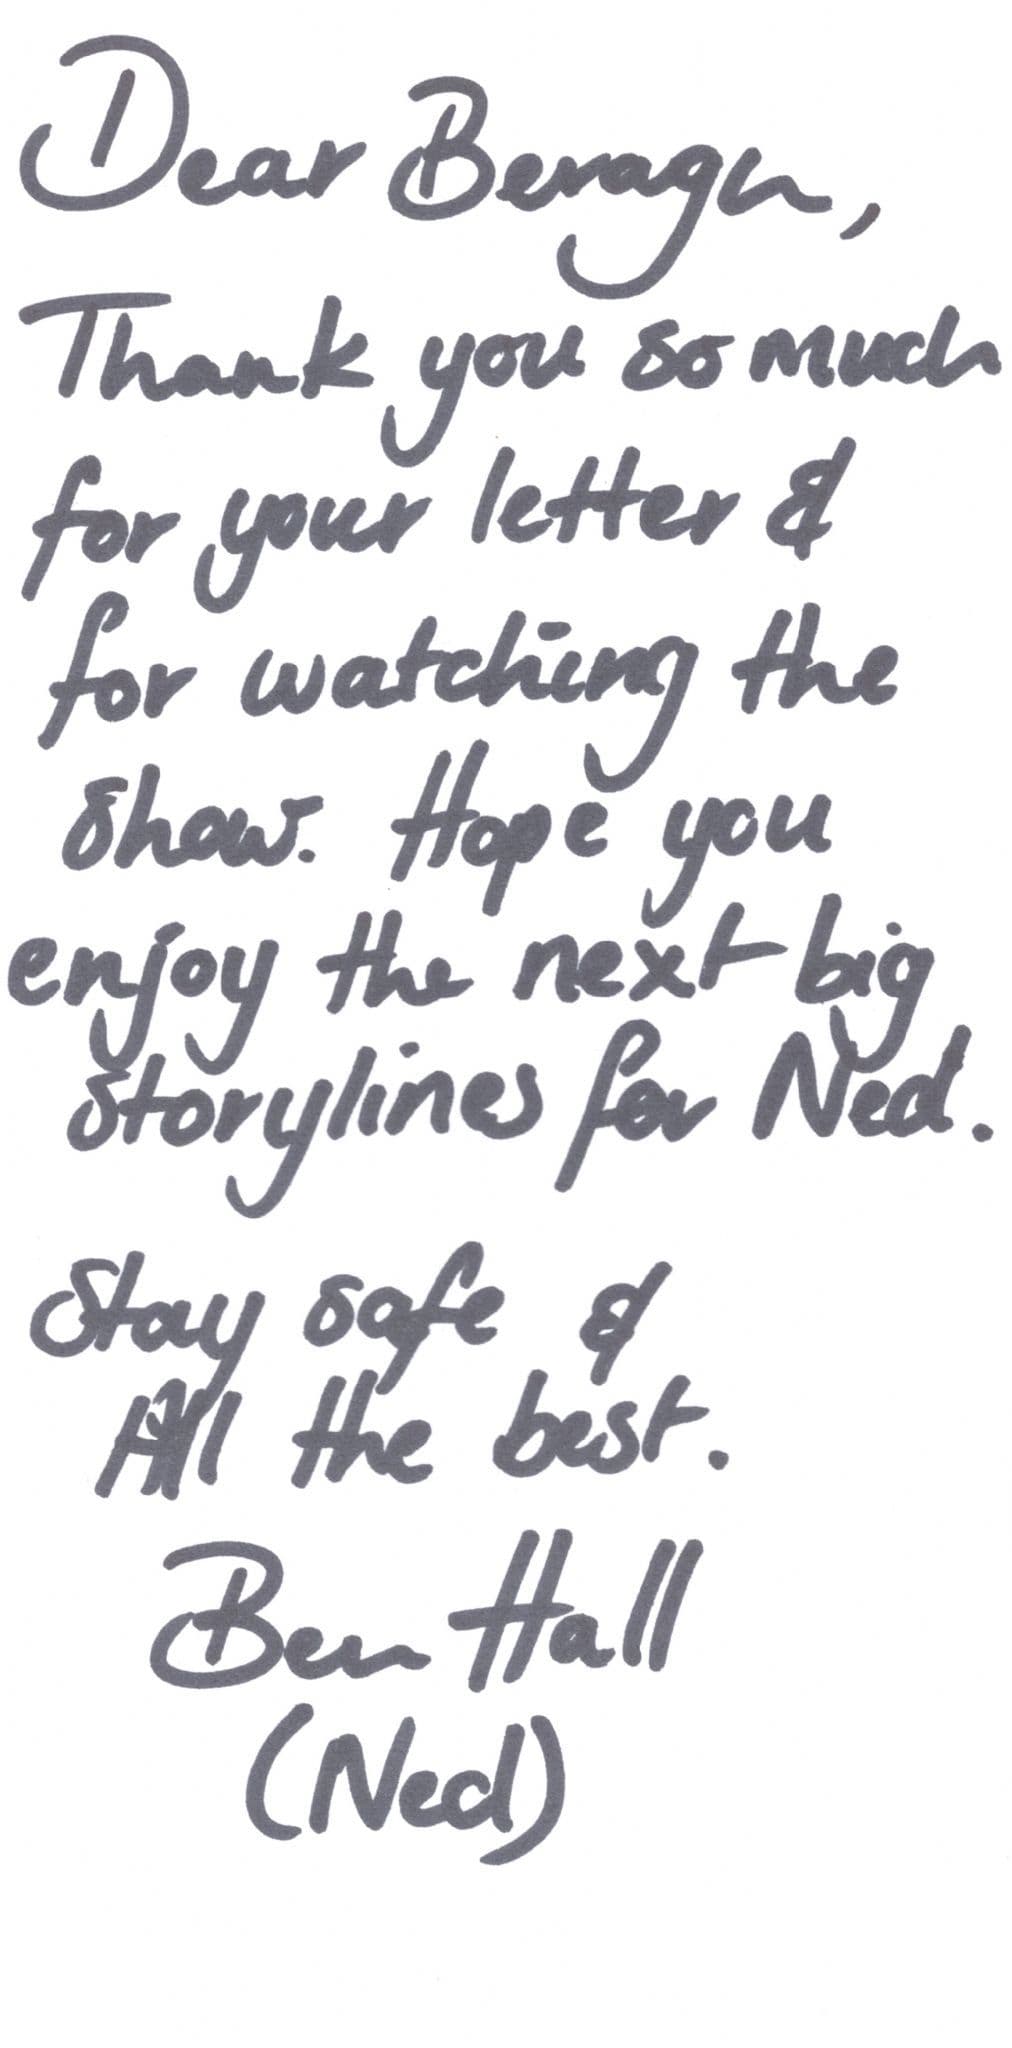 Dear
Thank you so much
for your letter &
for watching the
show. Hope you
enjoy the next big
storylines for Ned.
Stay safe &
All the best.
Ben Hall
(Ned)